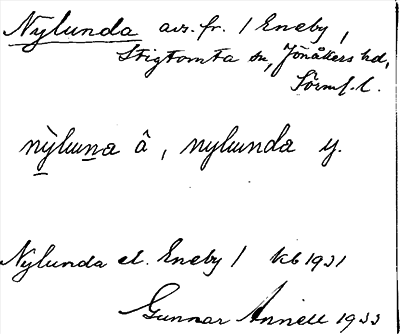 Nylunda avs. fr. 1 Eneby,
Stigtomta sn, Jönåkers hd,
Sörml. l.
nỳluṉa â, nylunda y.
Nylunda el. Eneby 1 kb 1931
Gunnar Annell 1933